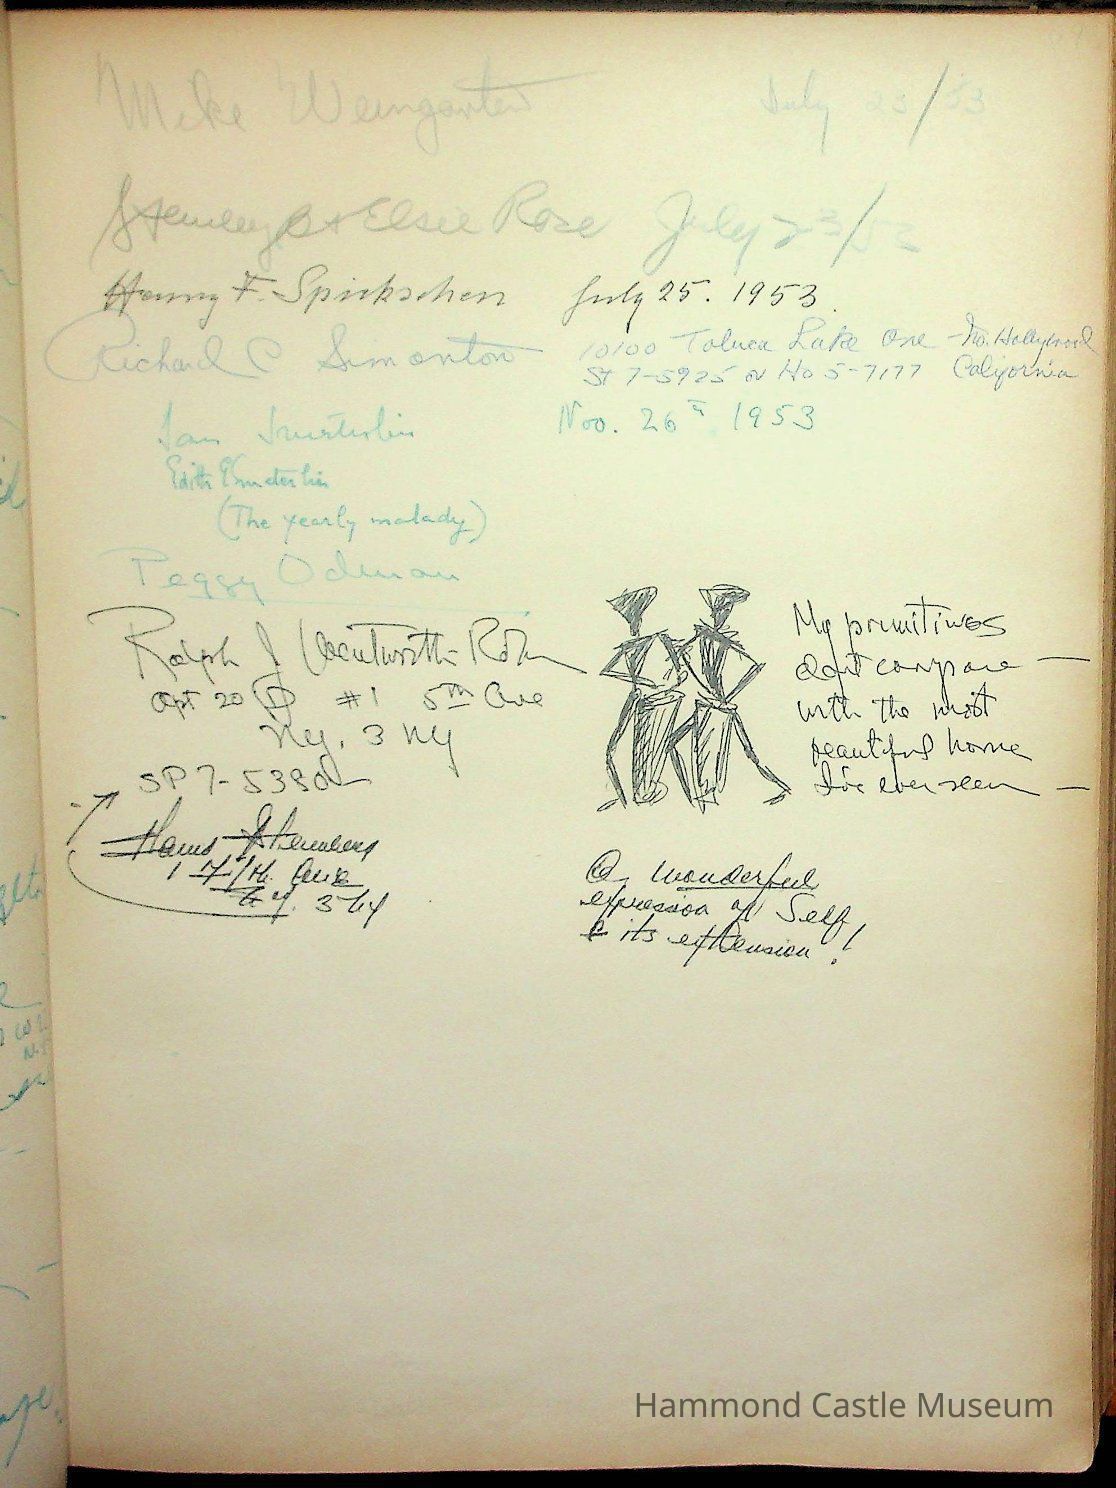 Mike Weingarten July 23/53
Stanley & Elsie Rose July 23/53
Henny F. Spickschen July 25. 1953
Richard C Simonton 10100 Toluca Lake Ave - No. Hollywood
St 7-5925 or Ho 5-7177 California
Nov. 26th 1953
Jan
Edith
(The yearly malady)
Peggy Odman
Ralph J Wentworth-Rohr
Apt 20 D #1 5th Ave
N.y. 3 NY
SP 7-5380
Hans
1 5th Ave
N.Y. 3 NY
My primitives
don't compare —
with the most
beautiful home
I've ever seen —
A wonderful
expression of Self
& its extension!
Hammond Castle Museum